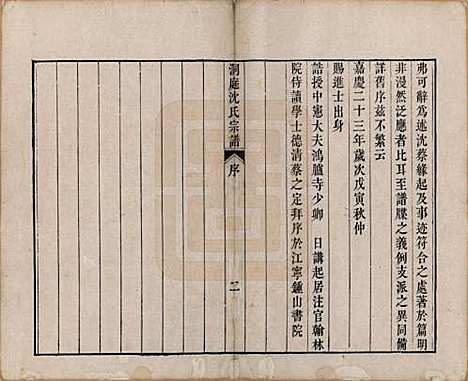 弗可辭爲述沈蔡緣起及事迹符合之處著於篇明
非漫然泛應者比耳至譜牒之義例支派之異同備
詳舊序兹不繁云
嘉慶二十三年歲次戊寅秋仲
賜進士出身
誥授中憲大夫鴻臚寺少卿 日講起居注官翰林
院侍讀學士德清蔡之定拜序於江寧鍾山書院
洞庭沈氏宗譜 序 二